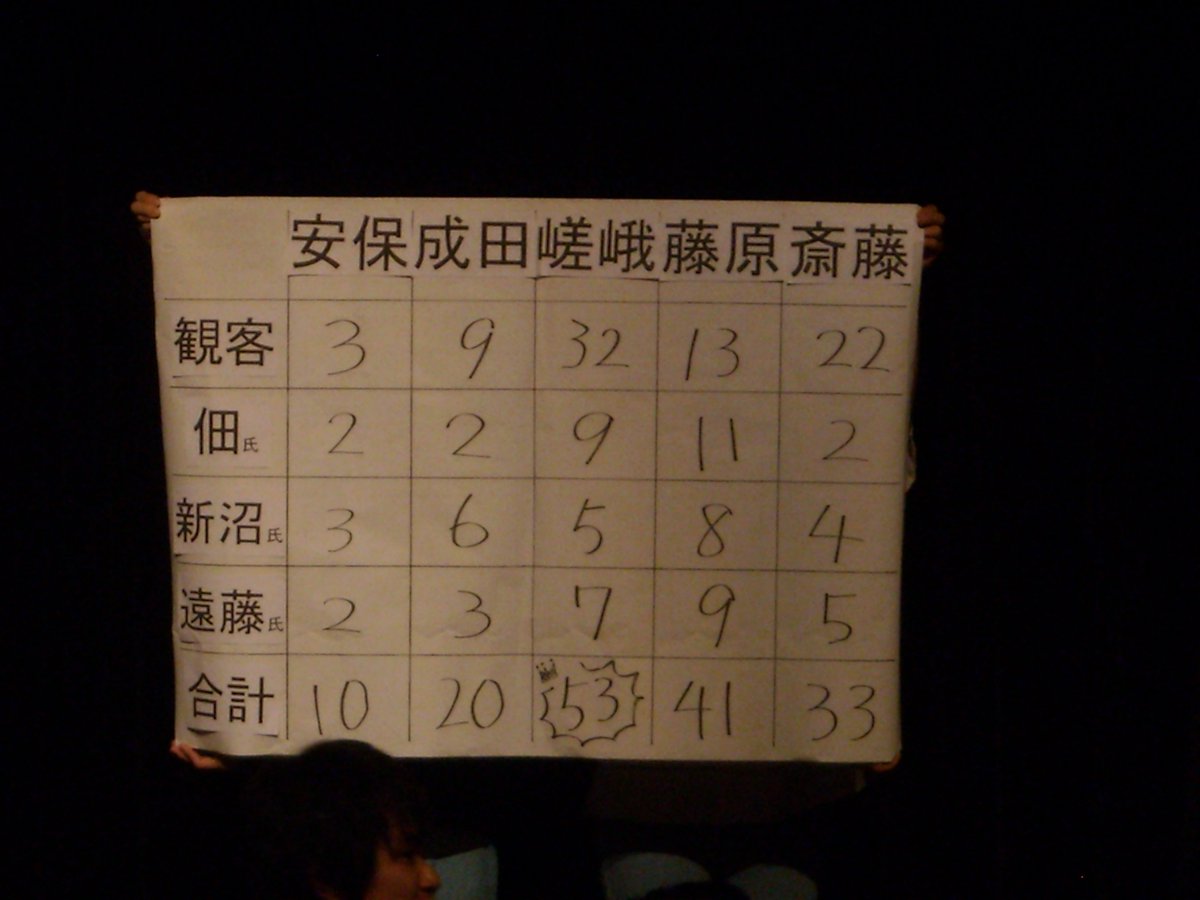 安保 成田 嵯峨 藤原 斎藤
観客 3 9 32 13 22
佃氏 2 2 9 11 2
新沼氏 3 6 5 8 4
遠藤氏 2 3 7 9 5
合計 10 20 53 41 33